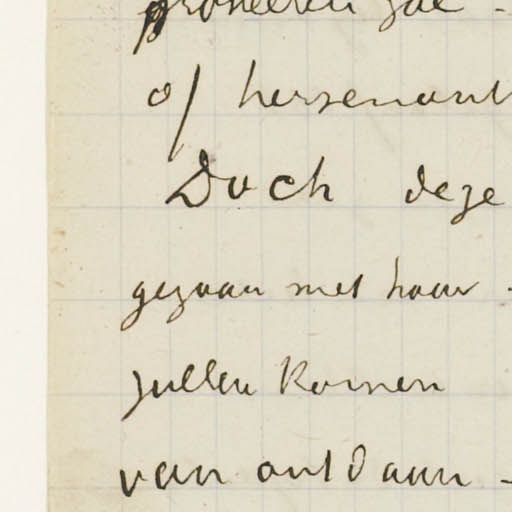 zal -
of hersenont
Doch deze
gegaan met haar -
zullen komen
van ontdaan -